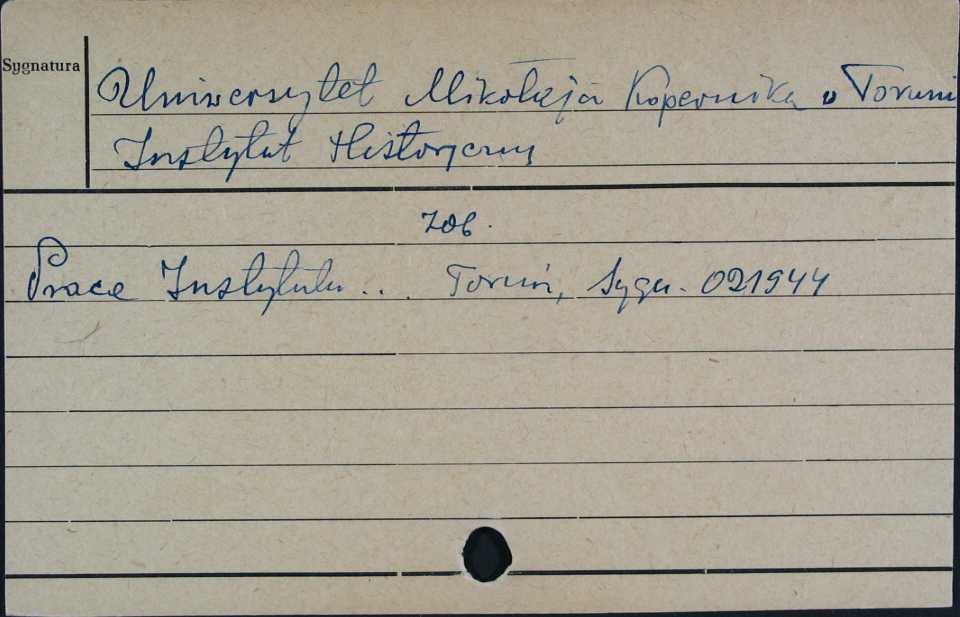 Sygnatura
Uniwersytet Mikołaja Kopernika w Toruniu
Instytut Historyczny
zob.
Prace Instytutu ... Toruń, Sygn. 021944